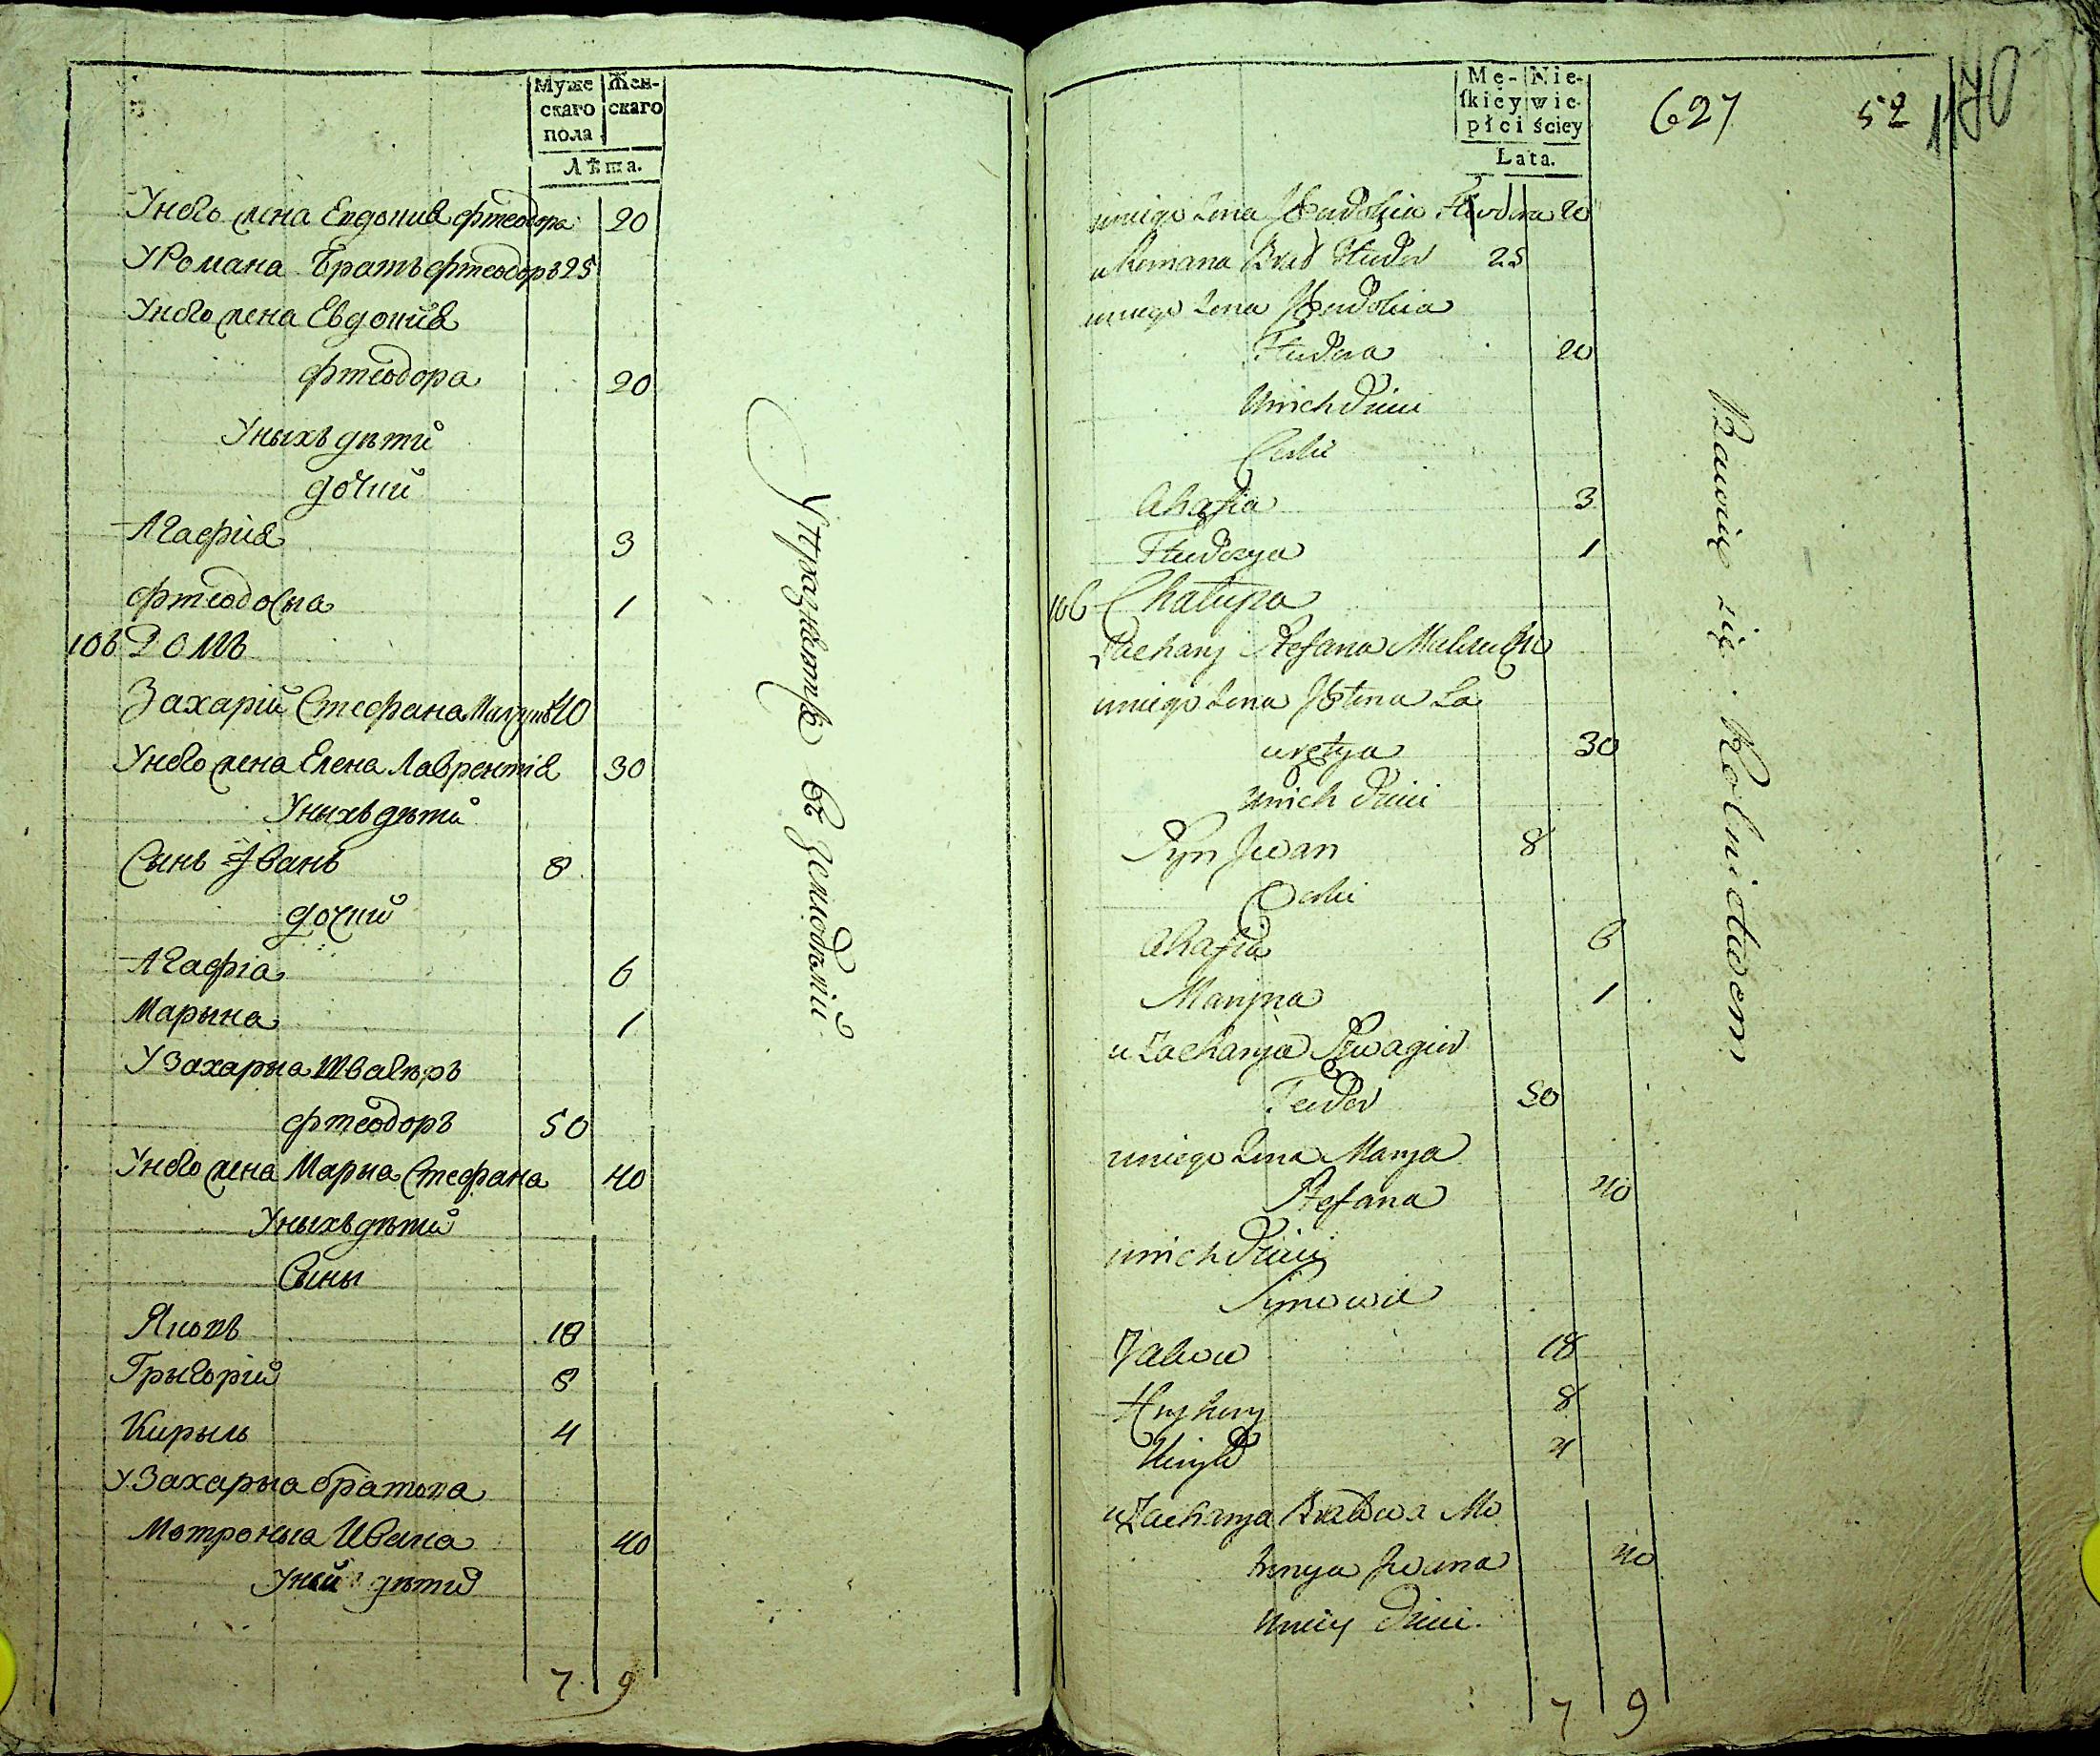 Муже Жен-
скаго скаго
пола
Лѣта.
Унего жена Евдокия Фтеодора 20
У Романа братъ Фтеодоръ 25
Унего жена Евдокия
Фтеодора 20
Уныхъ дѣти
дочки
Агафия 3
Фтеодосыа 1
106 Домъ
Захарій Стефана 40
Унего жена Елена Лаврентія 30
Уныхъ дѣти
Сынъ Іванъ 8
дочки
Агафіа 6
Марына 1
У Захарыа Швагѣръ
Фтеодоръ 50
Унего жена Марыа Стефана 40
Уныхъ дѣти
Сыны
Яковъ 18
Грыгорій 8
Кирыль 4
У Захарыа братова
Мотроныа Ивана 40
Уней дѣти
7 9
Упражняются въ земледѣлїи
Mę- Nie-
ſkiey wie-
płci ściey
Lata.
627 52 170
uniego żona Heudokia Fteodora 20
u Romana Brat Fteudor 25
uniego żona Heudokia
Fteudora 20
Unich dzieci
Corki
Ahafia 3
Fteudozya 1
106 Chałupa
Zachary Stefana 40
uniego żona Helena La
uretya 30
unich dzieci
Syn Jwan 8
Corki
Ahafia 6
Maryna 1
u Zacharya Szwagier
Teudor 50
uniego żona Marya
Stefana 40
unich dzieci
Synowie
Jakow 18
Hryhory 8
Kirył 4
u Zacharya Bratowa Mo
trunya Jwana 40
Uniey dzieci.
7 9
Bawią się Rolnictwem